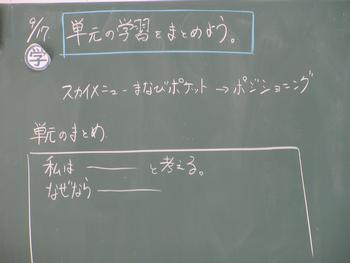 9/17
単元の学習をまとめよう。
学
スカイメニュー まなびポケット → ポジショニング
単元のまとめ
私は ――― と考える。
なぜなら ―――